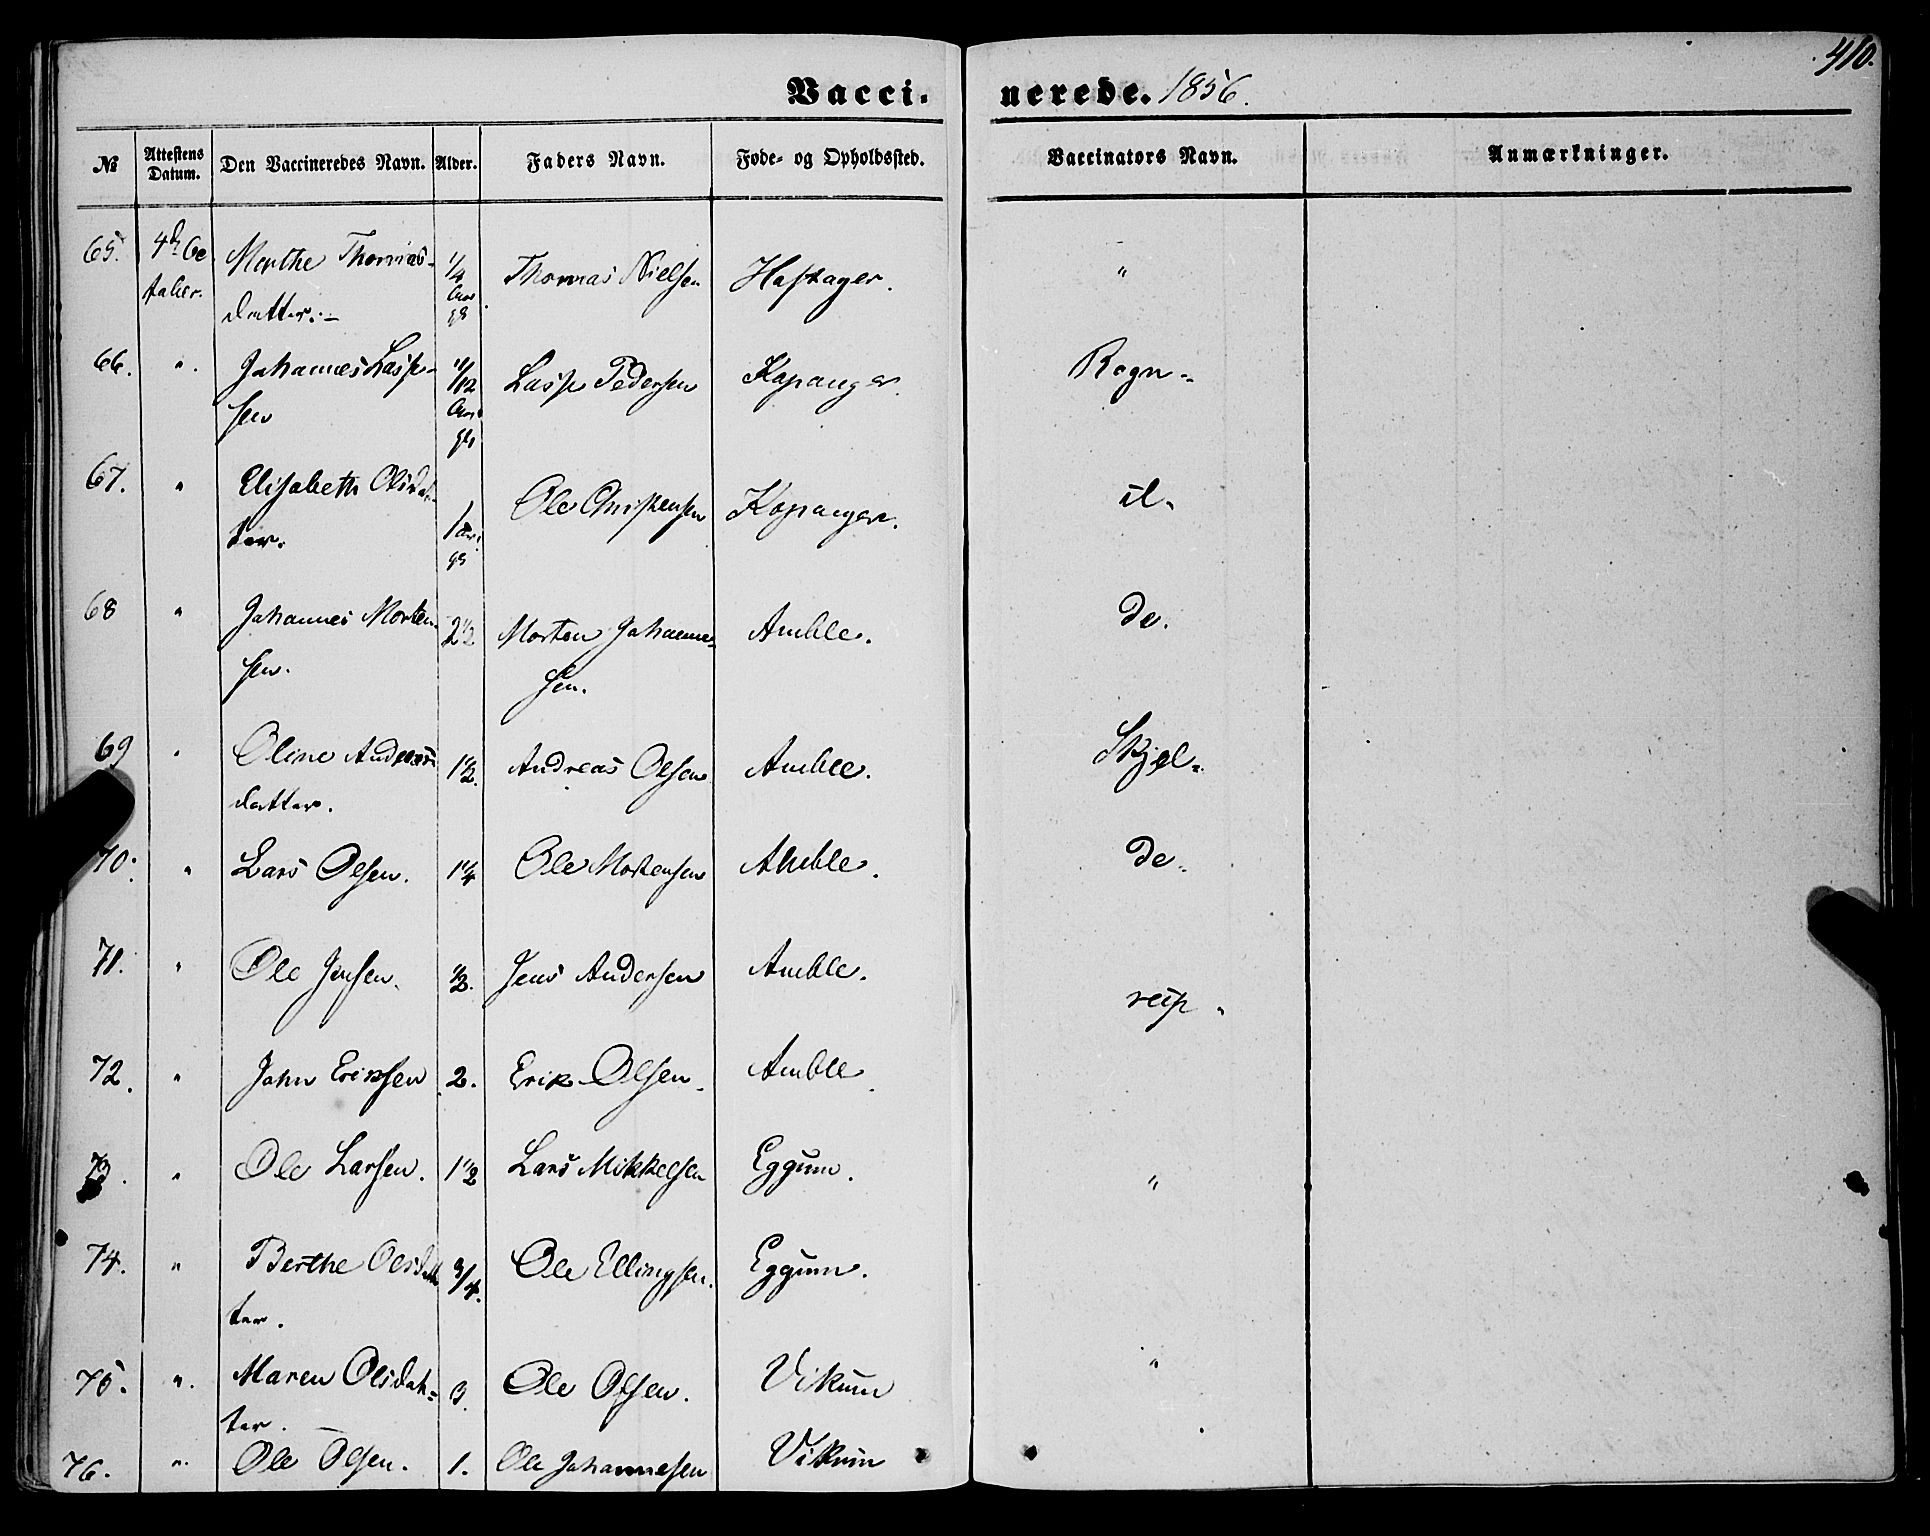 410.
Vacci- nerede. 1856.
№ Attestens Datum. Den Vaccineredes Navn. Alder. Faders Navn. Føde- og Opholdssted. Vaccinators Navn. Anmærkninger.
65. 4de Oc Marthe Thomas- 1/4 Thomas Nielsen "
tober. datter.
66. " Johannes Lasse- 11/12 Lasse Pedersen Kapanger. Rogn-
sen
67. " Elisabeth Olsdat- 1 Ole Christensen Kapanger. il-
ter.
68 " Johannes Morten- 2 1/2 Morten Johanne- Amble. de.
sen. sen.
69 " Oline Andreas- 1 1/2. Andreas Olsen Amble. Skjel-
datter.
70. " Lars Olsen. 1 1/4 Ole Mortensen Amble. de-
71. " Ole Jensen. 1/2. Jens Andersen Amble.
72. " John Eriksen 2. Erik Olsen. Amble.
73. " Ole Larsen. 1 1/2 Lars Mikkelsen Eggum. "
74. " Berthe Olsdat- 3/4. Ole Ellingsen. Eggum.
ter.
75. " Maren Olsdat- 3. Ole Olsen. Vikum "
ter.
76. " Ole Olsen. 1. Ole Johannesen Vikum